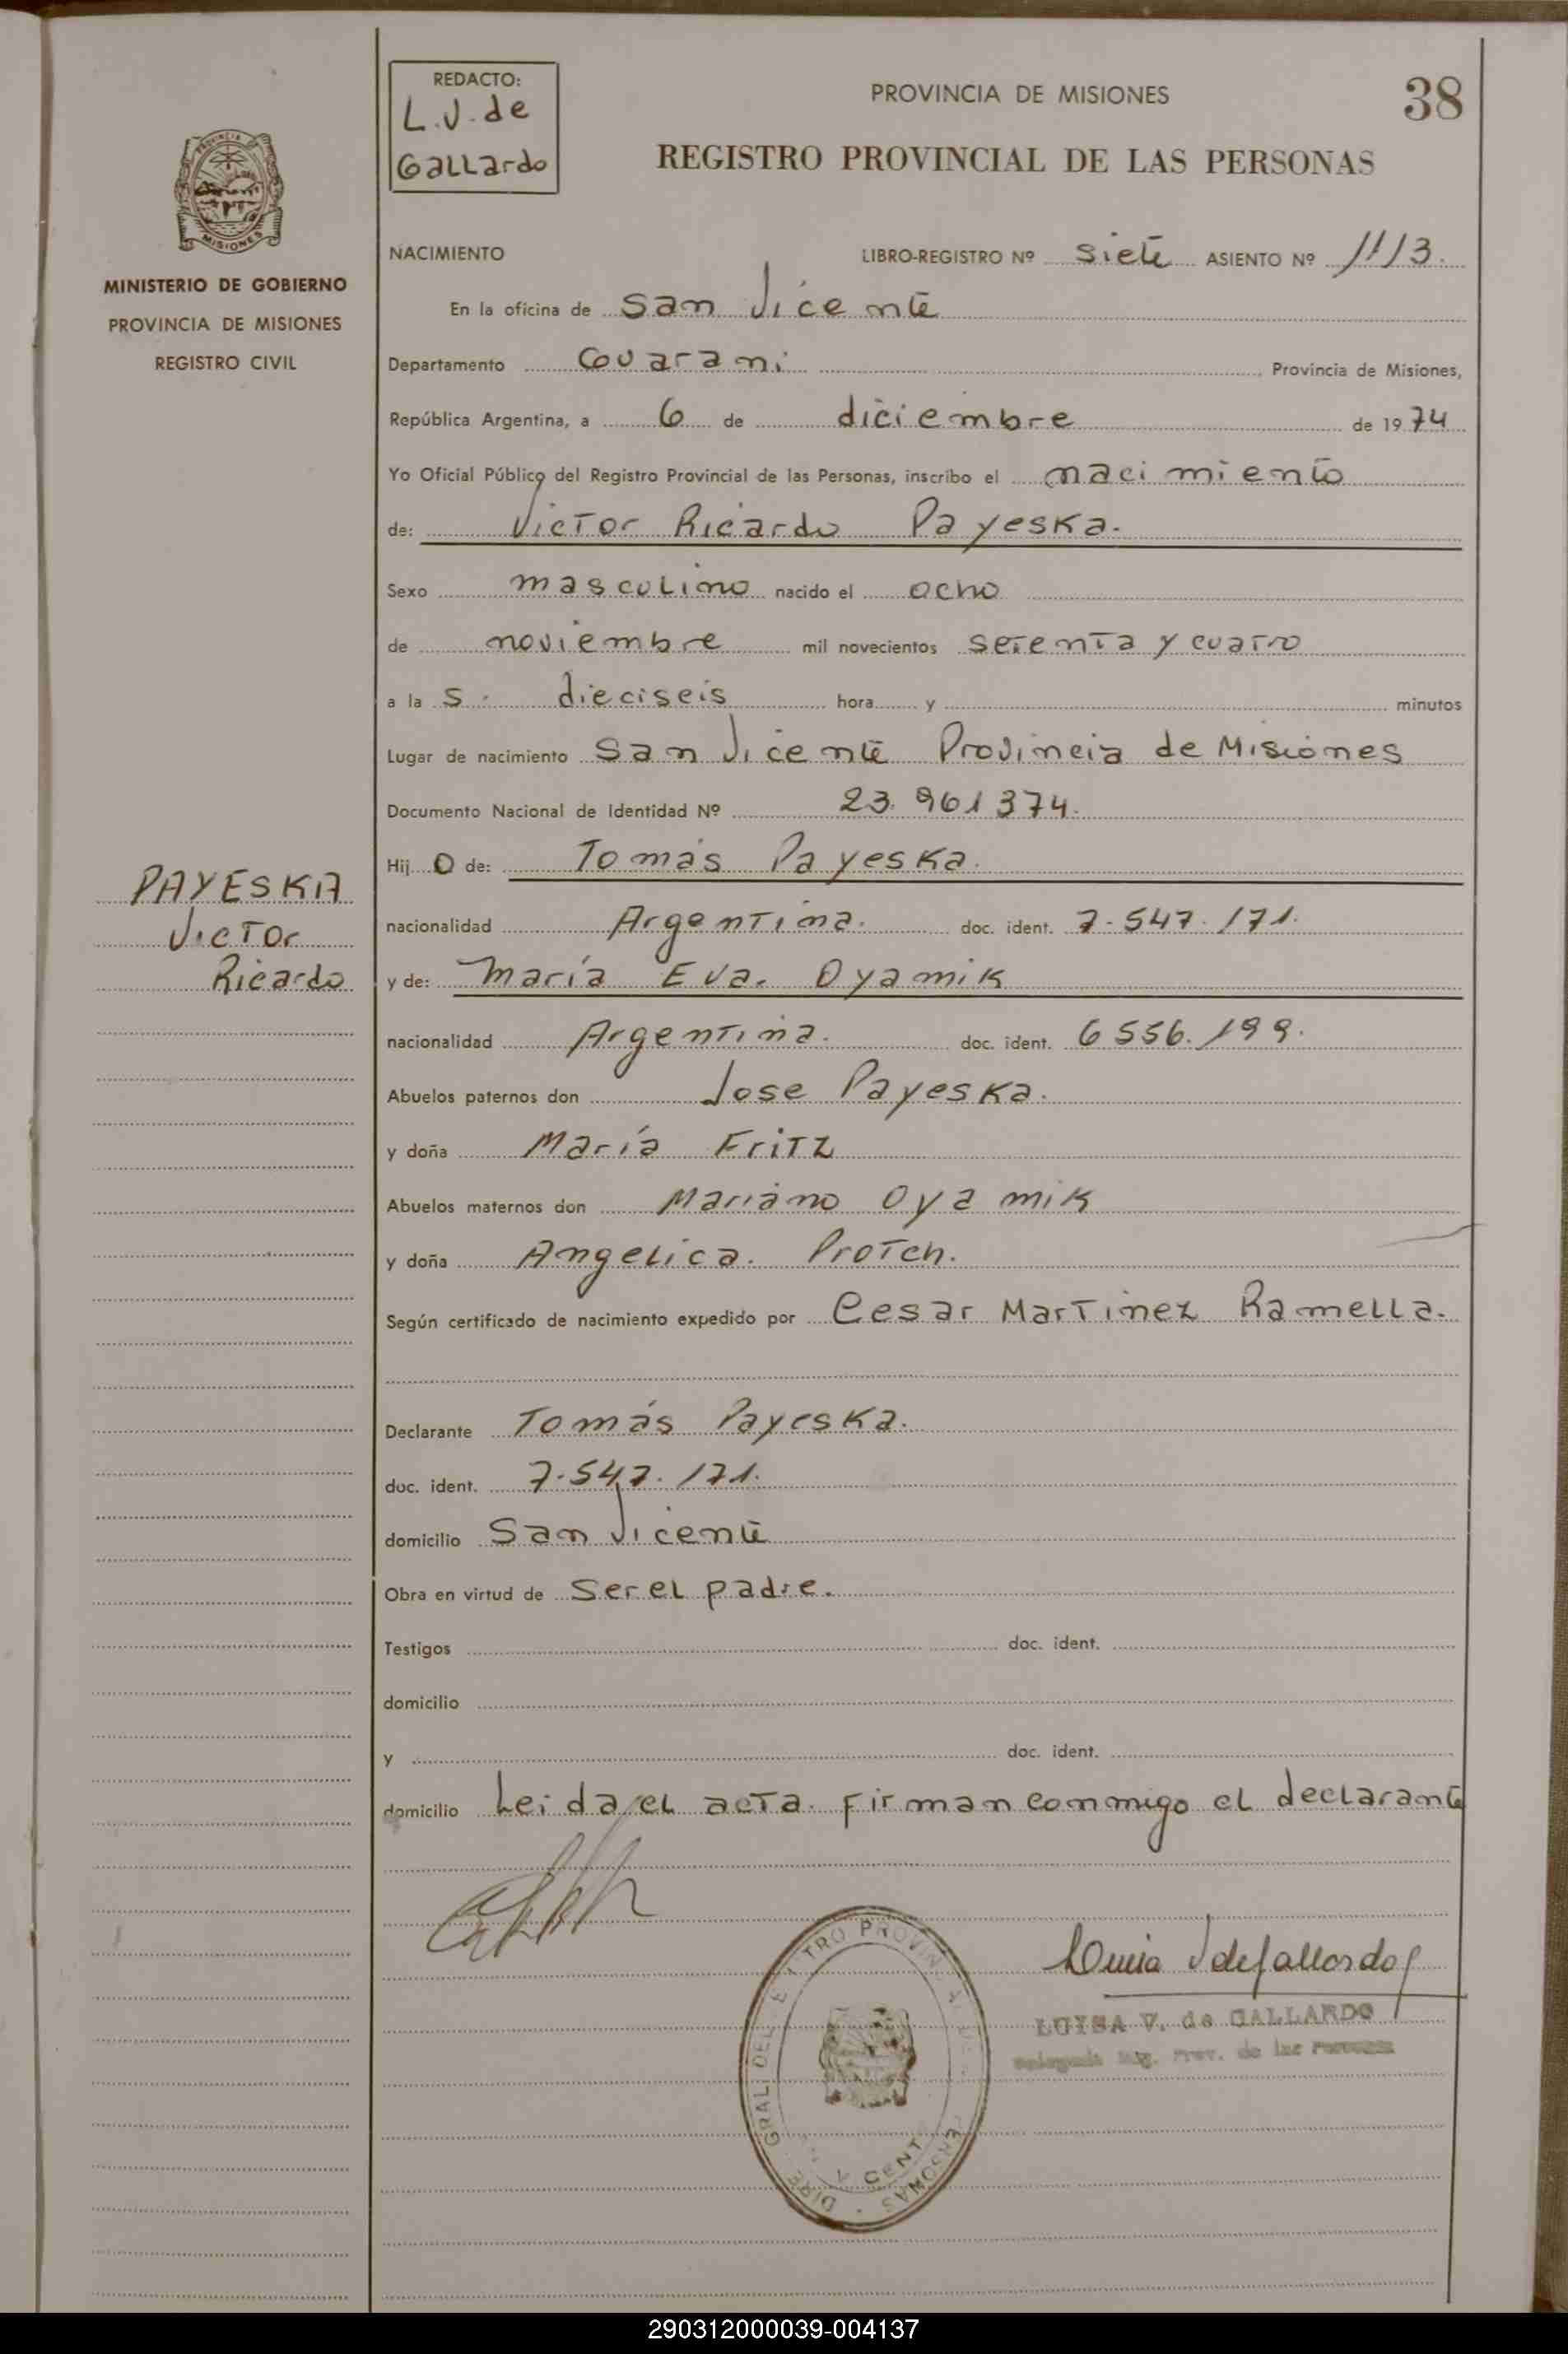 REDACTO:
L.V. de
Gallardo
PROVINCIA DE MISIONES
38
REGISTRO PROVINCIAL DE LAS PERSONAS
PROVINCIA
MISIONES
MINISTERIO DE GOBIERNO
PROVINCIA DE MISIONES
REGISTRO CIVIL
NACIMIENTO LIBRO-REGISTRO Nº siete ASIENTO Nº 1113.
En la oficina de San Vicente
Departamento Guarani Provincia de Misiones,
República Argentina, a 6 de diciembre de 1974
Yo Oficial Público del Registro Provincial de las Personas, inscribo el nacimiento
de: Victor Ricardo Payeska.
Sexo masculino nacido el ocho
de noviembre mil novecientos setenta y cuatro
a la s. dieciseis hora y minutos
Lugar de nacimiento San Vicente Provincia de Misiones
Documento Nacional de Identidad Nº 23.961374.
Hij o de: Tomás Payeska.
nacionalidad Argentina. doc. ident. 7.547.171.
y de: María Eva. Oyamik
nacionalidad Argentina. doc. ident. 6556.199.
Abuelos paternos don Jose Payeska.
y doña María Fritz
Abuelos maternos don Mariano Oyamik
y doña Angelica. Protch.
Según certificado de nacimiento expedido por Cesar Martinez Ramella.
PAYESKA
Victor
Ricardo
Declarante Tomás Payeska.
doc. ident. 7.547.171.
domicilio San Vicente
Obra en virtud de ser el padre.
Testigos doc. ident.
domicilio
y doc. ident.
domicilio Leida el acta. Firman conmigo el declarante
LUISA V. de GALLARDO
Delegada Reg. Prov. de las Personas
290312000039-004137